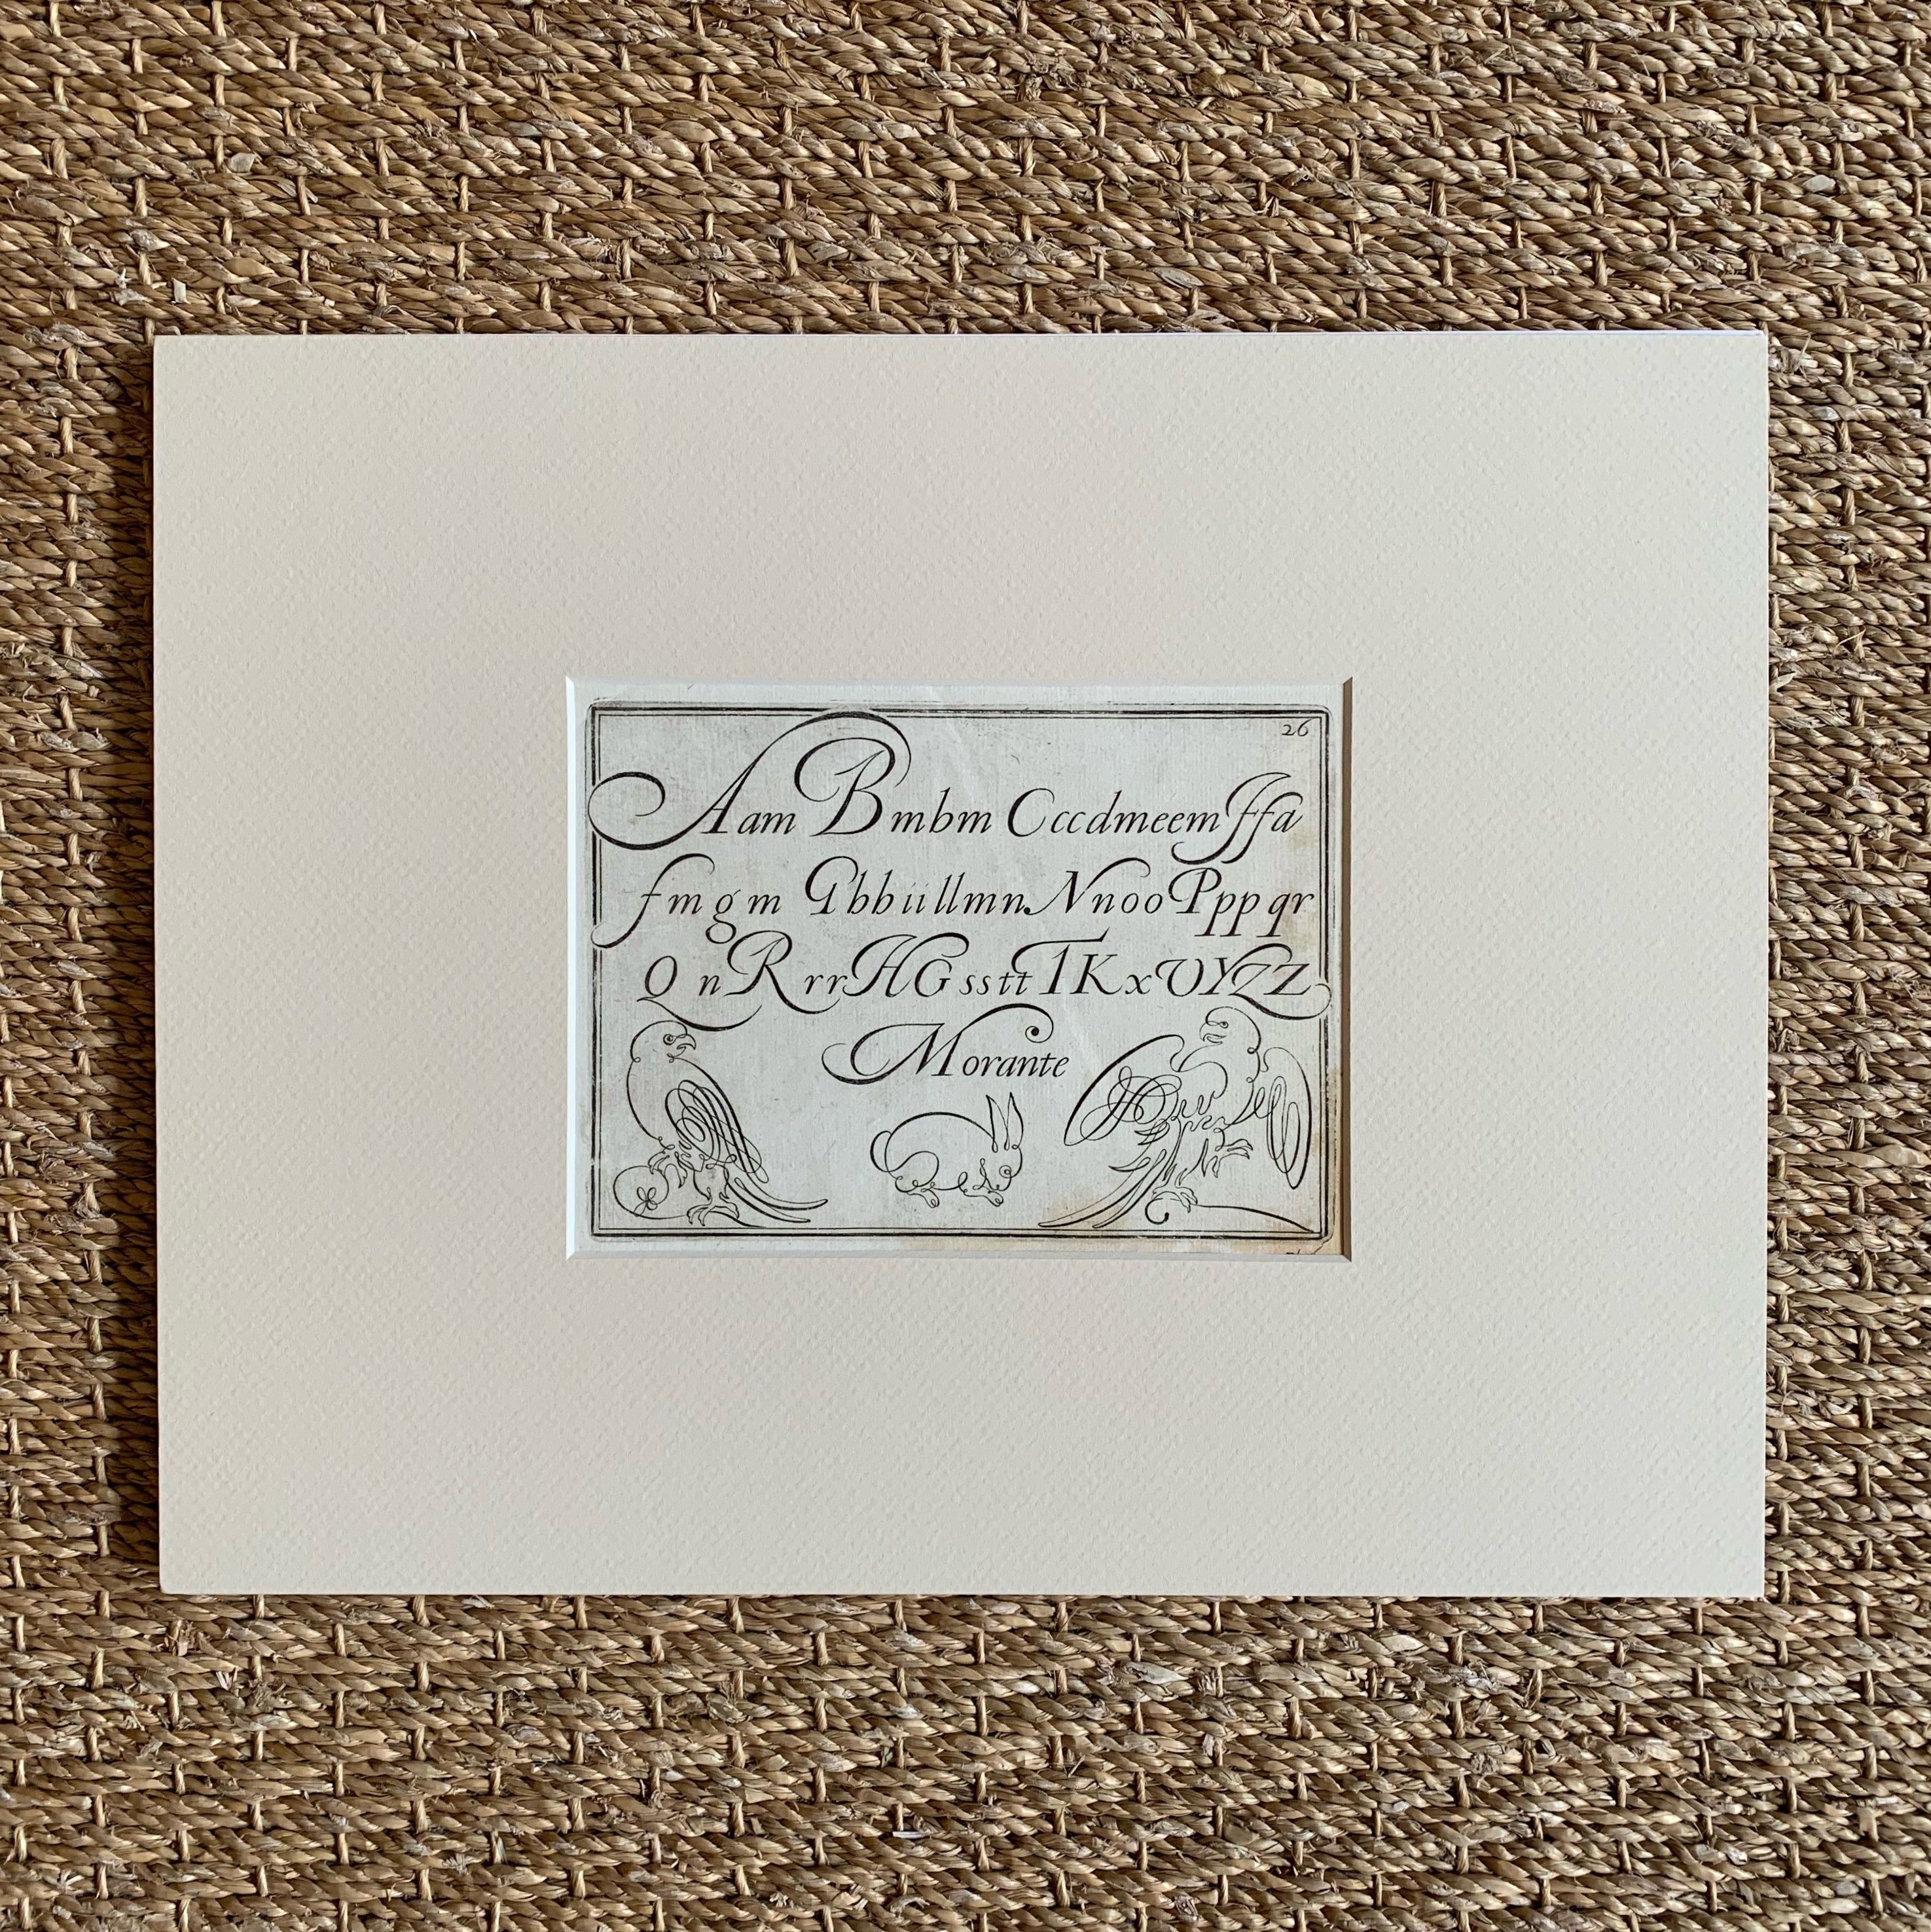 26
Aam Bmbm Cccdmeem Ffa
fmgm Ghhiillmn Nnoo Pppqr
Q n R rrr H G ss tt T K x V Y Z Z
Morante